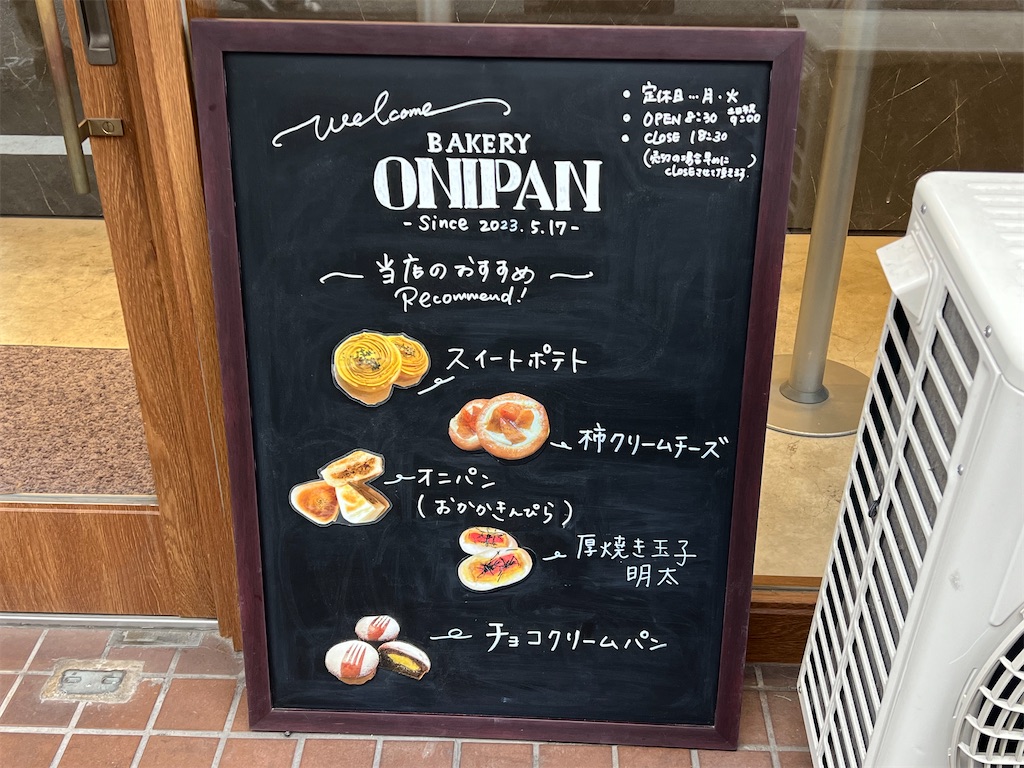 welcome
BAKERY
ONIPAN
-Since 2023.5.17-
• 定休日…月・火
• OPEN 8:30 土日祝 9:00
• CLOSE 18:30
(売切の場合早めに
CLOSEさせて頂きます.)
当店のおすすめ
Recommend!
スイートポテト
柿クリームチーズ
オニパン
(おかかきんぴら)
厚焼き玉子
明太
チョコクリームパン